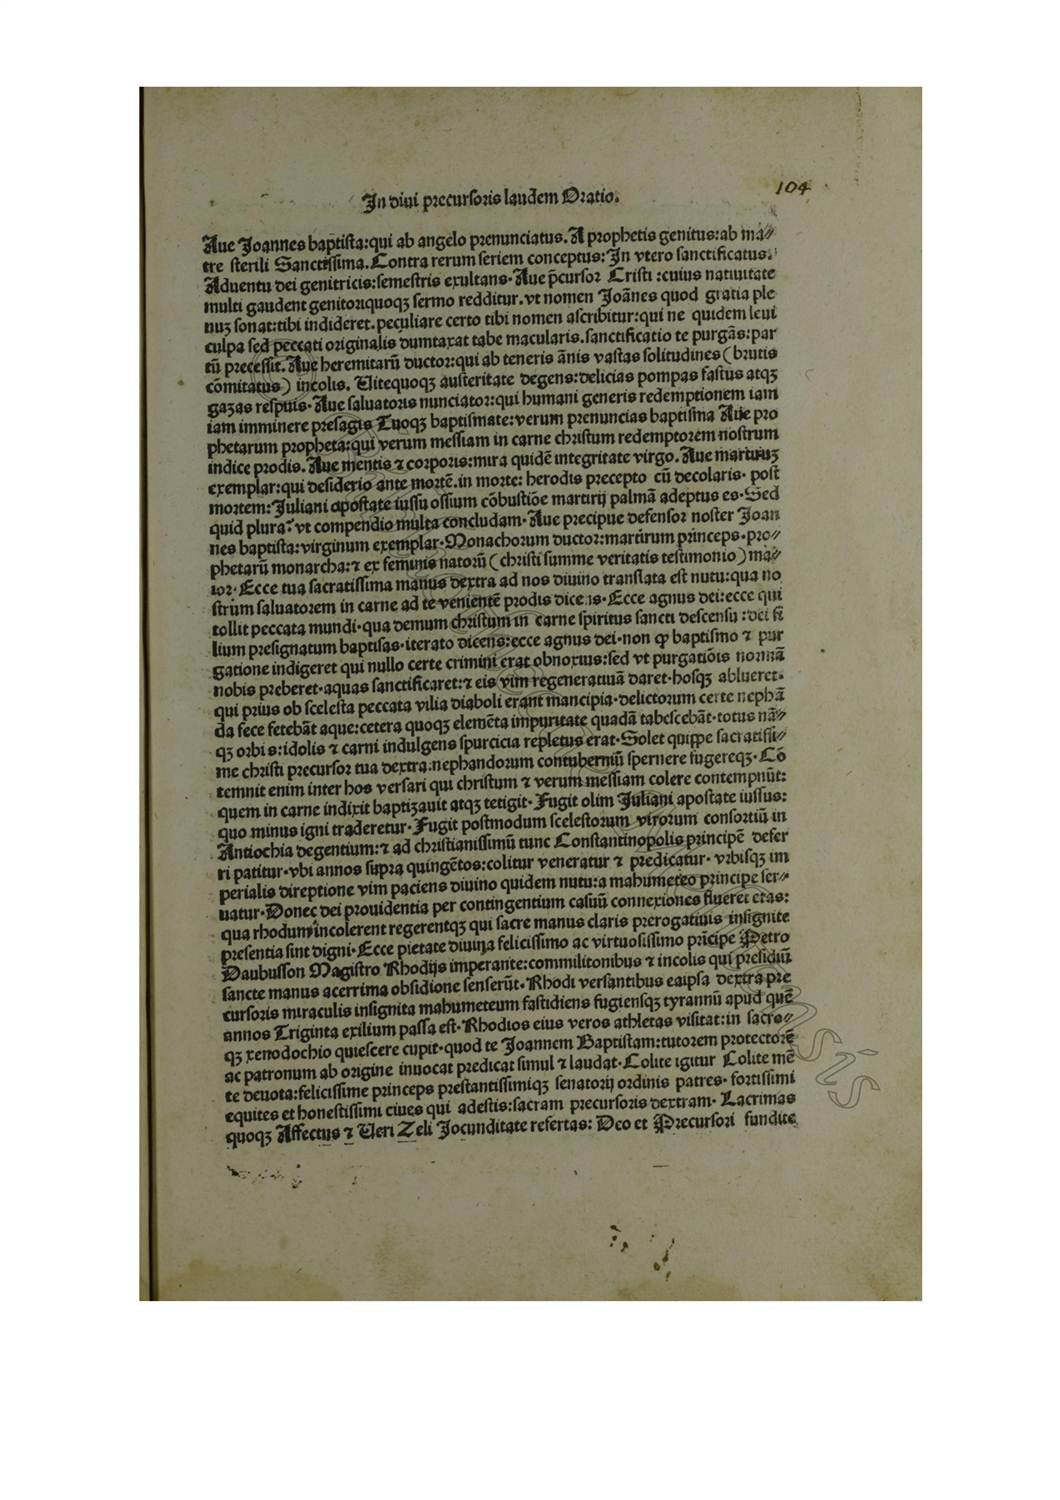 104
In diui precursoris laudem Oratio.
Aue Joannes baptista:qui ab angelo prenunciatus. A prophetis genitus:ab ma⸗
tre sterili Sanctissima. Contra rerum seriem conceptus: In vtero sanctificatus.
Aduentu dei genitricis:semestris exultans. Aue p̄cursor Cristi :cuius natiuitate
multi gaudent genitoriquoqꝫ sermo redditur. vt nomen Joānes quod gratia ple
nuꝫ sonat:tibi indideret. peculiare certo tibi nomen ascribitur:qui ne quidem leui
culpa sed peccati originalis dumtaxat tabe macularis. sanctificatio te purgās: par
tū precessit. Aue heremitarū ductor:qui ab teneris ānis vastas solitudines (brutis
cōmitatus) incolis. Uitequoqꝫ austeritate degens:delicias pompas fastus atqꝫ
gazas respuis. Aue saluatoris nunciator:qui humani generis redemptionem iam
iam imminere presagis Tuoqꝫ baptismate:verum prenuncias baptisma Aue pro
phetarum propheta:qui verum messiam in carne christum redemptorem nostrum
indice prodis. Aue mentis ⁊ corporis:mira quidē integritate virgo. Aue martiruꝫ
exemplar:qui desiderio ante mortē. in morte: herodis precepto cū decolaris. post
mortem: Juliani apostate iussu ossium cōbustiōe martirij palmā adeptus es. Sed
quid plura? vt compendio multa concludam. Aue precipue defensor noster Joan
nes baptista: virginum exemplar. Monachorum ductor:martirum princeps. pro⸗
phetarū monarcha:⁊ ex feminis natorū (christi summe veritatis testimonio) ma⸗
ior. Ecce tua sacratissima manus dextra ad nos diuino translata est nutu:qua no
strūm saluatorem in carne ad te venientē prodis dicens. Ecce agnus dei:ecce qui
tollit peccata mundi. qua demum christum in carne spiritus sancti descensu :dei fi
lium presignatum baptisas. iterato dicens:ecce agnus dei. non ꝙ baptismo ⁊ pur
gatione indigeret qui nullo certe crimini erat obnoxius:sed vt purgatiōis normā
nobis preberet. aquas sanctificaret:⁊ eis vim regeneratiuā daret. hosqꝫ ablueret.
qui prius ob scelesta peccata vilia diaboli erant mancipia. delictorum certe nephā
da fece fetebāt aque:cetera quoqꝫ elemēta impuritate quadā tabescebāt. totus nā⸗
qꝫ orbis:idolis ⁊ carni indulgens spurcicia repletus erat. Solet quippe sacratissi⸗
me christi precursor tua dextra:nephandorum contuberniū spernere fugereqꝫ. Cō
temnit enim inter hos versari qui christum ⁊ verum messiam colere contempnūt:
quem in carne indixit baptizauit atqꝫ tetigit. Fugit olim Juliani apostate iussus:
quo minus igni traderetur. Fugit postmodum scelestorum virorum consortiū in
Antiochia degentium:⁊ ad christianissimū tunc Constantinopolis principē defer
ri patitur. vbi annos supra quingētos:colitur veneratur ⁊ predicatur. vrbisqꝫ im
perialis direptione vim paciens diuino quidem nutu:a mahumeteo principe ser⸗
uatur. Donec dei prouidentia per contingentium casuū connexiones flueret etas:
qua rhodum incolerent regerentqꝫ qui sacre manus claris prerogatiuis insignite
presentia sint digni. Ecce pietate diuina felicissimo ac virtuosissimo prīcipe Petro
Daubusson Magistro Rhodijs imperante:commilitonibus ⁊ incolis qui presidiū
sancte manus acerrima obsidione senserūt. Rhodi versantibus eaipsa dextra pre
cursoris miraculis insignita mahumeteum fastidiens fugiensqꝫ tyrannū apud quē
annos Triginta exilium passa est. Rhodios eius veros athletas visitat:in sacro⸗
qꝫ xenodochio quiescere cupit. quod te Joannem Baptistam:tutorem protectorē
ac patronum ab origine inuocat predicat simul ⁊ laudat. Colite igitur Colite mē
te deuota:felicissime princeps prestantissimiqꝫ senatorij ordinis patres. fortissimi
equites et honestissimi ciues qui adestis:sacram precursoris dextram. Lacrimas
quoqꝫ Affectus ⁊ Ueri Zeli Jocunditate refertas: Deo et Precursori fundite